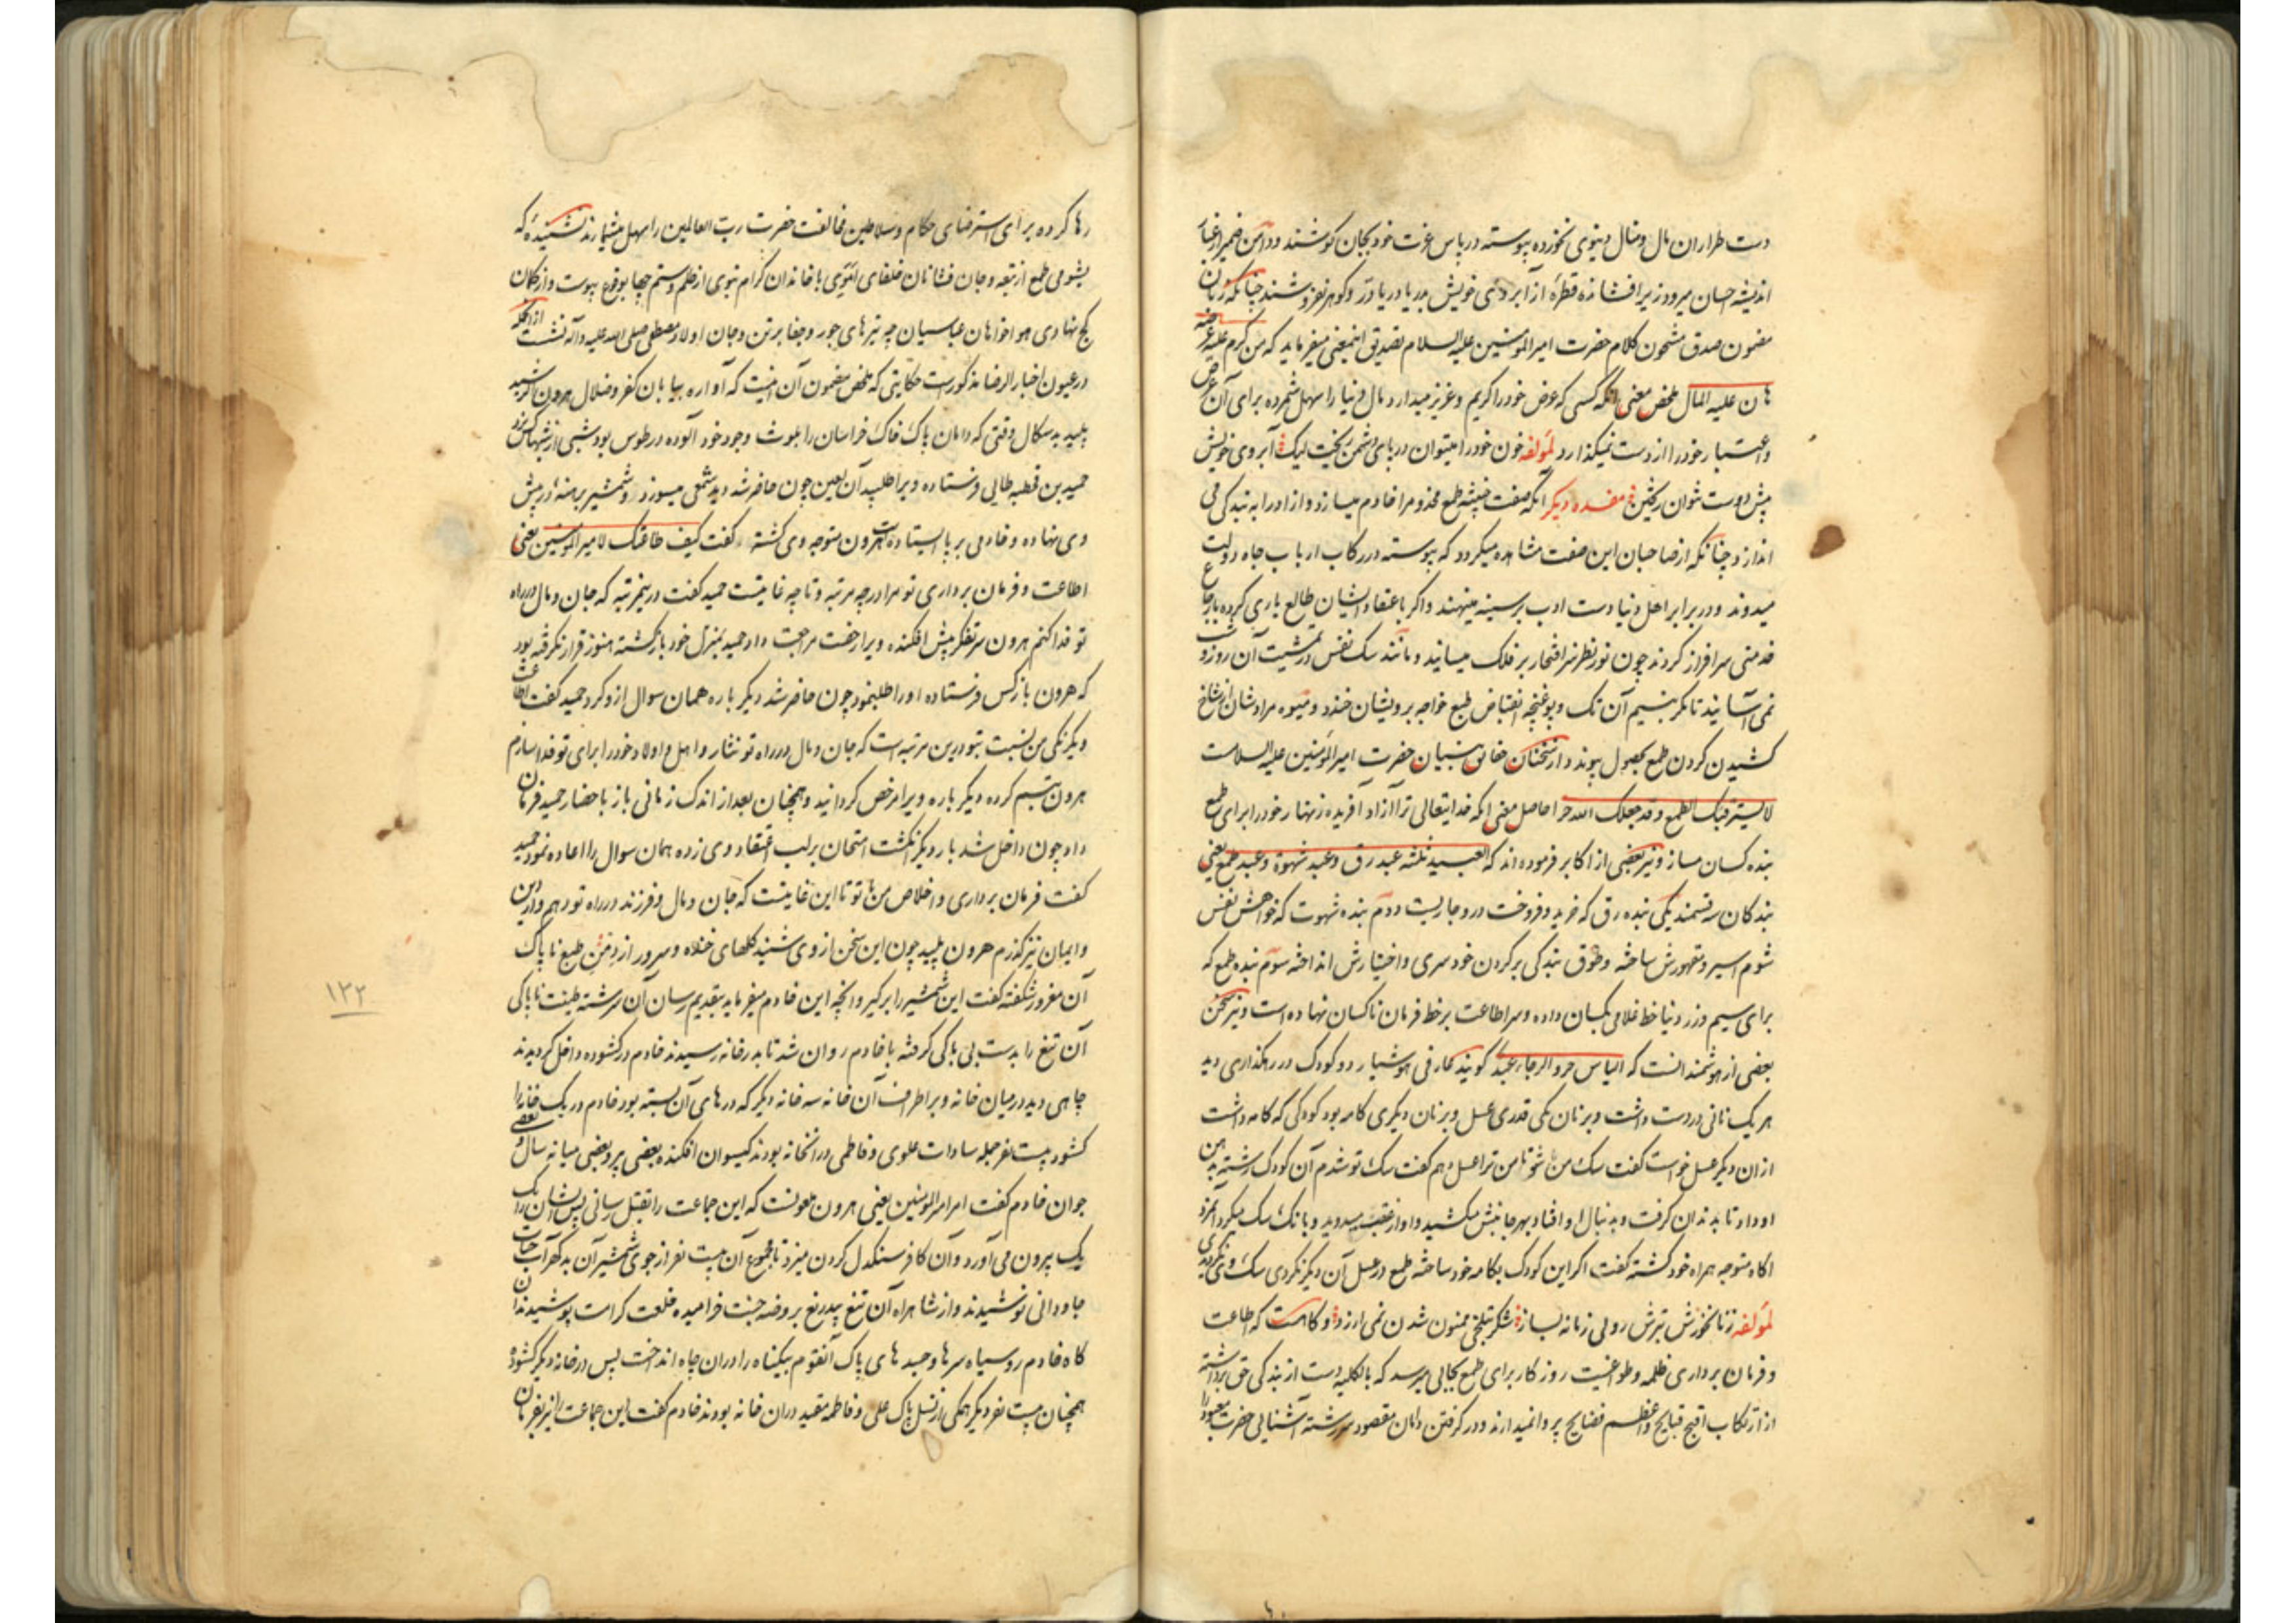 دست طراران مال و منال دنیوی نخورده پیوسته در پاس عزت خود بجان کوشند و دامن ضمیر از غبار
اندیشه احسان میرود زیر افشانده قطره از آبروی خویش بدریا دریا درّ و کوهر نفروشند چنانکه زبان
مضمون صدق مشحون کلام حضرت امیرالمومنین علیه السلام تصدیق اینمعنی میفرماید که من کرم علیه عرضه
هان علیه المال ملخص معنی آنکه کسی که عرض خود را کریم و عزیز میدارد مال دنیا را سهل شمرده برای آن عرض
و اعتبار خود را از دست نمیکذارد لمؤلفه خون خود را میتوان در پای دشمن ریخت لیک آبروی خویش
پیش دوست نتوان ریختن مفسده دیکر آنکه صفت خبیثه طمع مخدوم را خادم میسازد و آزاد را به بندکی می
اندازد چنانکه از صاحبان این صفت مشاهده میکردد که پیوسته در رکاب ارباب جاه و دولت
میدوند و در برابر اهل دنیا دست ادب بر سینه مینهند و اکر باعتقاد ایشان طالع یاری کرده بارجاع
خدمتی سرافراز کردند چون نور نظر سر افتخار بر فلک میسانید و مانند سک نفس در مشیت آن روز و شب
نمی آسایند تا مکر بنسیم آن تک و پو غنچه انقباض طبع خواجه برویشان خندد و میوه مرادشان از شاخ
کشیدن کردن طمع بحصول پیوندد و از سخنان حقایق بنیان حضرت امیرالمؤمنین علیه السلامست
لا یسترقنک الطمع و قد جعلک الله حرا حاصل معنی آنکه خدایتعالی ترا آزاد آفریده زنهار خود را برای طمع
بنده کسان مساز و نیز بعضی از اکابر فرموده اند که العبید ثلثه عبد رق و عبد شهوة و عبد طمع یعنی
بندکان سه قسمند یکی بنده رق که خرید و فروخت درو جاریست دوم بنده شهوت که خواهش نفس
شوم اسیر و مقهورش ساخته و طوق بندکی بر کردن خودسری و اختیارش انداخته سوم بنده طمع که
برای سیم و زر دنیا خط غلامی بکسان داده و سر اطاعت بر خط فرمان ناکسان نهاده است و نیز سخن
بعضی از هوشمندانست که الیاس حر و الرجاء عبد کویند عارفی هوشیار دو کودک در رهکذاری دید
هر یک نانی در دست داشت و بر نان یکی قدری عسل و بر نان دیکری کامه بود کودکی که کامه داشت
از ان دیکر عسل خواست کفت سک من شو تا من ترا عسل دهم کفت سک تو شدم آن کودک رشته بدهن
او داد تا بدندان کرفت و بدنبال او افتاد بهر جانبش میکشید و او از عقب میدوید و بانک سک میکرد آنمرد
آکاه متوجه همراه خود کشته کفت اکر این کودک بکامه خود ساخته طمع در عسل آن دیکر نکردی سک وی نکردیدی
لمؤلفه ز نانخورش ترش رویی زمانه بساز شکر بتلخی ممنون شدن نمی ارزد و کاهست که اطاعت
و فرمان برداری ظلمه و طواغیت روزکار برای طمع بجایی میرسد که بالکلیه دست از بندکی حق برداشته
از ارتکاب اقبح قبایح و اعظم فضایح پروا نمیدارند و در کرفتن دامان مقصود سررشته آشنایی حضرت معبود را
رها کرده برای استرضای حکام و سلاطین مخالفت حضرت رب العالمین را سهل میشمارند نشنیده که
بشومی طمع از تبعه و جان فشانان خلفای اموی با خاندان کرام نبوی از ظلم و ستم چها بوقوع پیوست و از کمان
کج نهادی هواخواهان عباسیان چه تیرهای جور و جفا بر تن و جان اولاد مصطفی صلی الله علیه و آله نشست از آنجمله
در عیون اخبار الرضا مذکورست حکایتی که ملخص مضمون آن اینست که آواره بیابان کفر و ضلال هرون الرشید
پلید بدسکال وقتی که دامان پاک خاک خراسان را بلوث وجود خود آلوده در طوس بود شبی از شبها کس نزد
حمید بن قحطبه طایی فرستاده ویرا طلبید آن لعین چون حاضر شد دید شمعی میسوزد و شمشیر برهنه در پیش
وی نهاده و خادمی بر پا ایستادست هرون متوجه وی کشته کفت کیف طاعتک لامیرالمومنین یعنی
اطاعت و فرمان برداری تو مرا در چه مرتبه و تا چه غایتست حمید کفت در ینمرتبه که جان و مال در راه
تو فدا کنم هرون سر تفکر پیش افکنده ویرا رخصت مراجعت داد حمید بمنزل خود بازکشته هنوز قرار نکرفته بود
که هرون باز کس فرستاده او را طلب نمود چون حاضر شد دیکر باره همان سوال ازو کرد حمید کفت اطاعت
و یکرنکی من نسبت بتو درین مرتبه است که جان و مال در راه تو نثار و اهل و اولاد خود را برای تو فدا سازم
هرون تبسم کرده دیکر باره ویرا مرخص کردانید و همچنان بعد از اندک زمانی باز باحضار حمید فرمان
داد چون داخل شد بار دیکر انکشت امتحان بر لب اعتقاد وی زده همان سوال را اعاده نمود حمید
کفت فرمان برداری و اخلاص من با تو تا این غایتست که جان و مال و فرزند در راه تو دهم و از دین
و ایمان نیز کذرم هرون پلید چون این سخن از وی شنید کلهای خنده و سرور از دمن طبع ناپاک
آن مغرور شکفته کفت این شمشیر را برکیر و آنچه این خادم میفرماید بتقدیم رسان آن سرشته طینت ناپاکی
آن تیغ را بدست بی باکی کرفته با خادم روان شد تا بدر خانه رسیدند خادم در کشوده داخل کردیدند
چاهی دید در میان خانه و بر اطراف آن خانه سه خانه دیکر که درهای آن بسته بود خادم در یک خانه را
کشود بیست نفر جمله سادات علوی و فاطمی در آنخانه بودند کیسوان افکنده بعضی پیر و بعضی میانه سال و بعضی
جوان خادم کفت امر امیرالمؤمنین یعنی هرون ملعونست که این جماعت را بقتل رسانی پس ایشان را یک
یک بیرون می آورد و آن کافر سنکدل کردن میزد تا مجموع آن بیست نفر از جوی شمشیر آن بدکهر آب حیات
جاودانی نوشیدند و از شاهراه آن تیغ بیدریغ بروضه جنت خرامیده خلعت کرامت پوشیدند آن
کاه خادم روسیاه سرها و جسدهای پاک آنقوم بیکناه را در ان چاه انداخت پس در خانه دیکر کشود
همچنان بیست نفر دیکر همکی از نسل پاک علی و فاطمه مقید در ان خانه بودند خادم کفت این جماعت را نیز بفرمان
۱۲۲